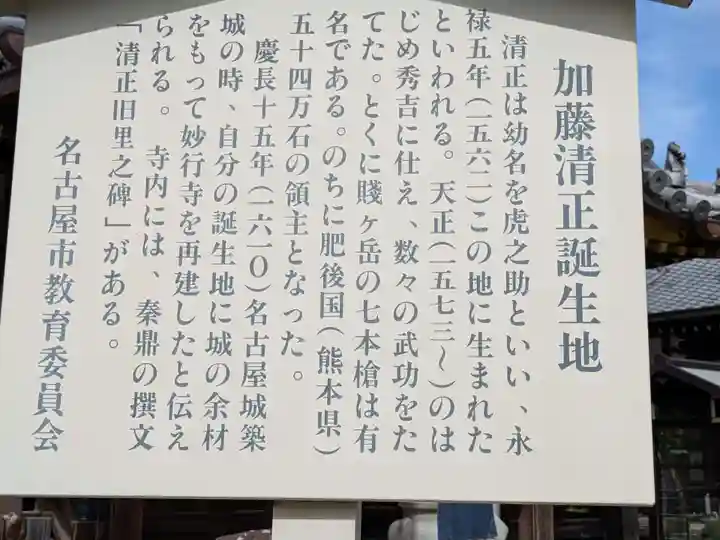 加藤清正誕生地
清正は幼名を虎之助といい、永
禄五年(一五六二)この地に生まれた
といわれる。天正(一五七三～)のは
じめ秀吉に仕え、数々の武功をた
てた。とくに賤ヶ岳の七本槍は有
名である。のちに肥後国(熊本県)
五十四万石の領主となった。
慶長十五年(一六一〇)名古屋城築
城の時、自分の誕生地に城の余材
をもって妙行寺を再建したと伝え
られる。 寺内には、秦鼎の撰文
「清正旧里之碑」がある。
名古屋市教育委員会